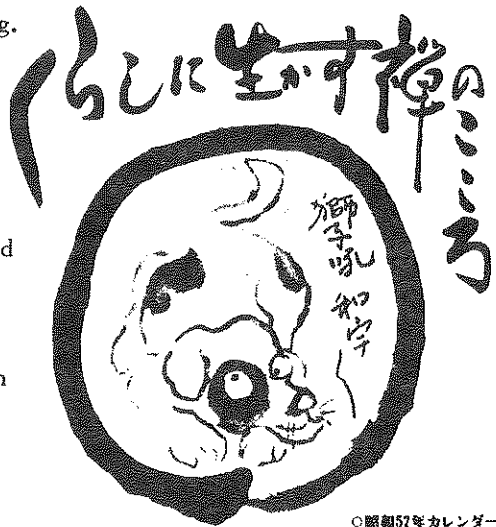 g.
くらしに生かす禅のこころ
獅子吼
和宇
d
n
○昭和57年カレンダー